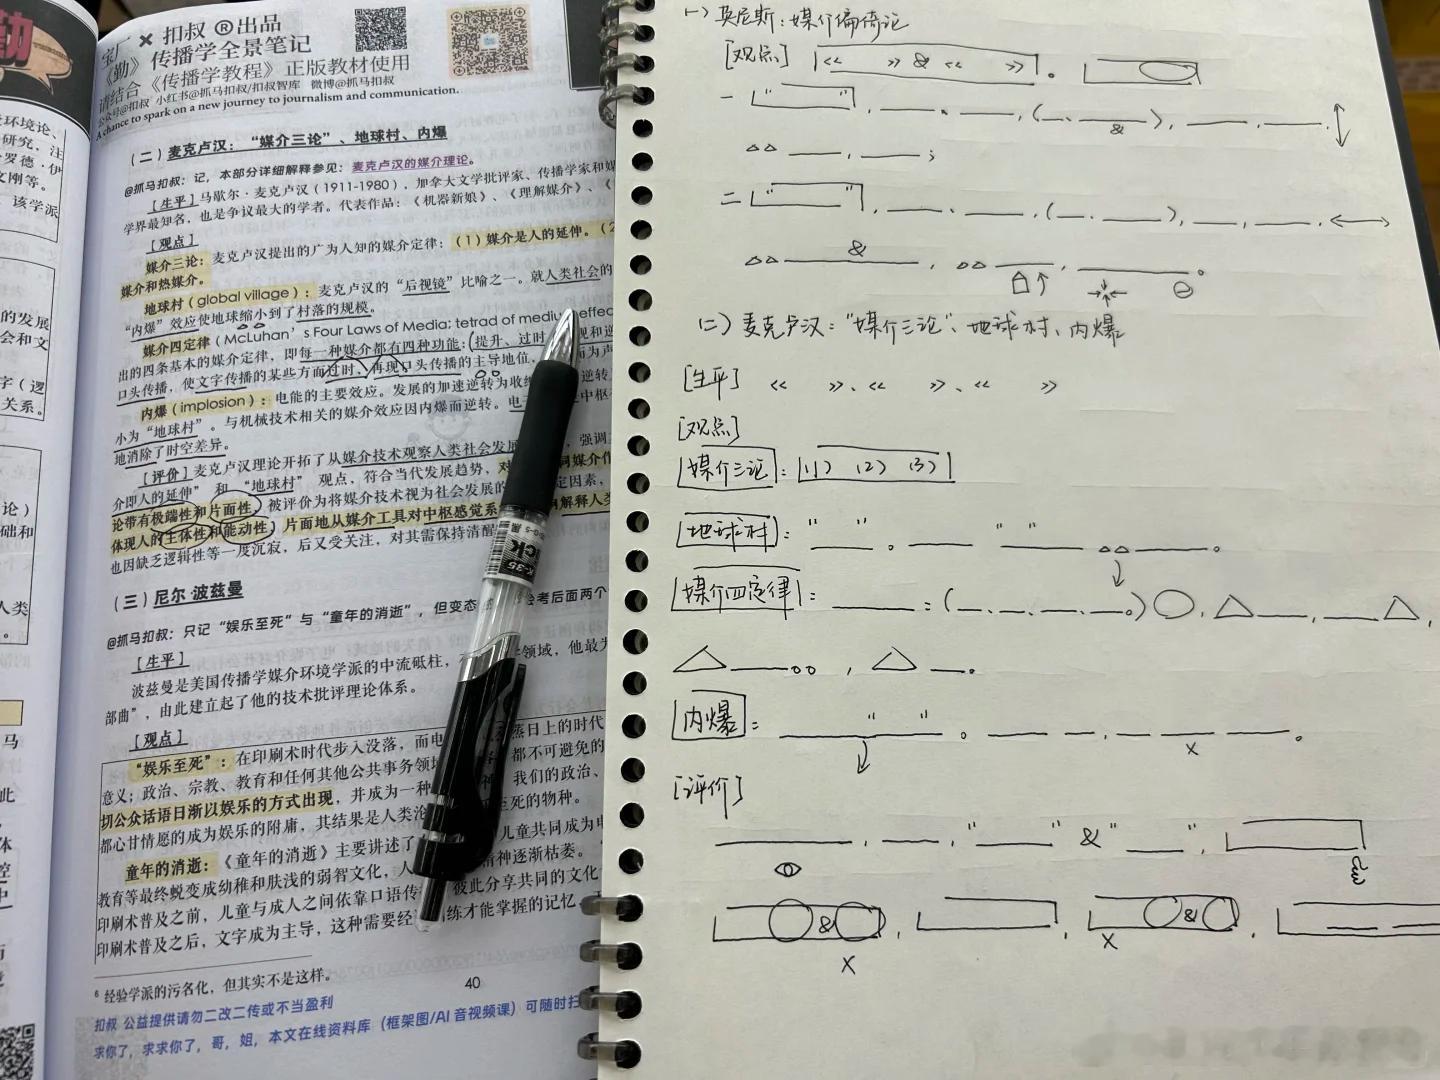 宝厂 × 扣叔 ®出品
《勤》传播学全景笔记
请结合《传播学教程》正版教材使用
公众号@扣叔 小红书@抓马扣叔/扣叔智库 微博@抓马扣叔
A chance to spark on a new journey to journalism and communication.
(二)麦克卢汉:“媒介三论”、地球村、内爆
@抓马扣叔:记,本部分详细解释参见:麦克卢汉的媒介理论。
[生平]马歇尔·麦克卢汉(1911-1980),加拿大文学批评家、传播学家和媒
学界最知名,也是争议最大的学者。代表作品:《机器新娘》、《理解媒介》、《
[观点]
媒介三论:麦克卢汉提出的广为人知的媒介定律:(1)媒介是人的延伸。(2
媒介和热媒介。
地球村(global village):麦克卢汉的“后视镜”比喻之一。就人类社会的
“内爆”效应使地球缩小到了村落的规模。
媒介四定律(McLuhan's Four Laws of Media; tetrad of media effec
出的四条基本的媒介定律,即每一种媒介都有四种功能:(提升、过时 现和逆
口头传播,使文字传播的某些方面过时,再现口头传播的主导地位, 而为声
内爆(implosion):电能的主要效应。发展的加速逆转为收缩 逆转
小为“地球村”。与机械技术相关的媒介效应因内爆而逆转。电 中枢
地消除了时空差异。
[评价]麦克卢汉理论开拓了从媒介技术观察人类社会发展 ,强调
介即人的延伸”和“地球村”观点,符合当代发展趋势,对 同媒介作
论带有极端性和片面性,被评价为将媒介技术视为社会发展的 定因素,
体现人的主体性和能动性,片面地从媒介工具对中枢感觉系 解释人类
也因缺乏逻辑性等一度沉寂,后又受关注,对其需保持清醒
(三)尼尔·波兹曼
@抓马扣叔:只记“娱乐至死”与“童年的消逝”,但变态 会考后面两个
[生平]
波兹曼是美国传播学媒介环境学派的中流砥柱, 领域,他最为
部曲”,由此建立起了他的技术批评理论体系。
[观点]
“娱乐至死”:在印刷术时代步入没落,而电 蒸日上的时代
意义;政治、宗教、教育和任何其他公共事务领域 都不可避免的
切公众话语日渐以娱乐的方式出现,并成为一种 神。我们的政治、
都心甘情愿的成为娱乐的附庸,其结果是人类沦 至死的物种。
童年的消逝:《童年的消逝》主要讲述了 儿童共同成为电
教育等最终蜕变成幼稚和肤浅的弱智文化,人 精神逐渐枯萎。
印刷术普及之前,儿童与成人之间依靠口语传 彼此分享共同的文化
印刷术普及之后,文字成为主导,这种需要经 练才能掌握的记忆
6 经验学派的污名化,但其实不是这样。
40
扣叔 公益提供请勿二改二传或不当盈利
求你了,求求你了,哥,姐,本文在线资料库(框架图/AI音视频课)可随时扫
K-35
环境论、
研究,注
罗德·伊
文刚等。
该学派
的发展
会和文
字(逻
关系。
论)
础和
人类
马
一)英尼斯:媒介偏倚论
[观点] 《 》&《 》。
一 “ ”
二 “ ”
(二)麦克卢汉:“媒介三论”、地球村、内爆
[生平] 《 》、《 》、《 》
[观点]
媒介三论:(1) (2) (3)
地球村:“ ”。 “ ” 。
媒介四定律: :( 、 、 、 。)
内爆: “ ” 。
[评价]
“ ” & “ ”,
& , , & ,